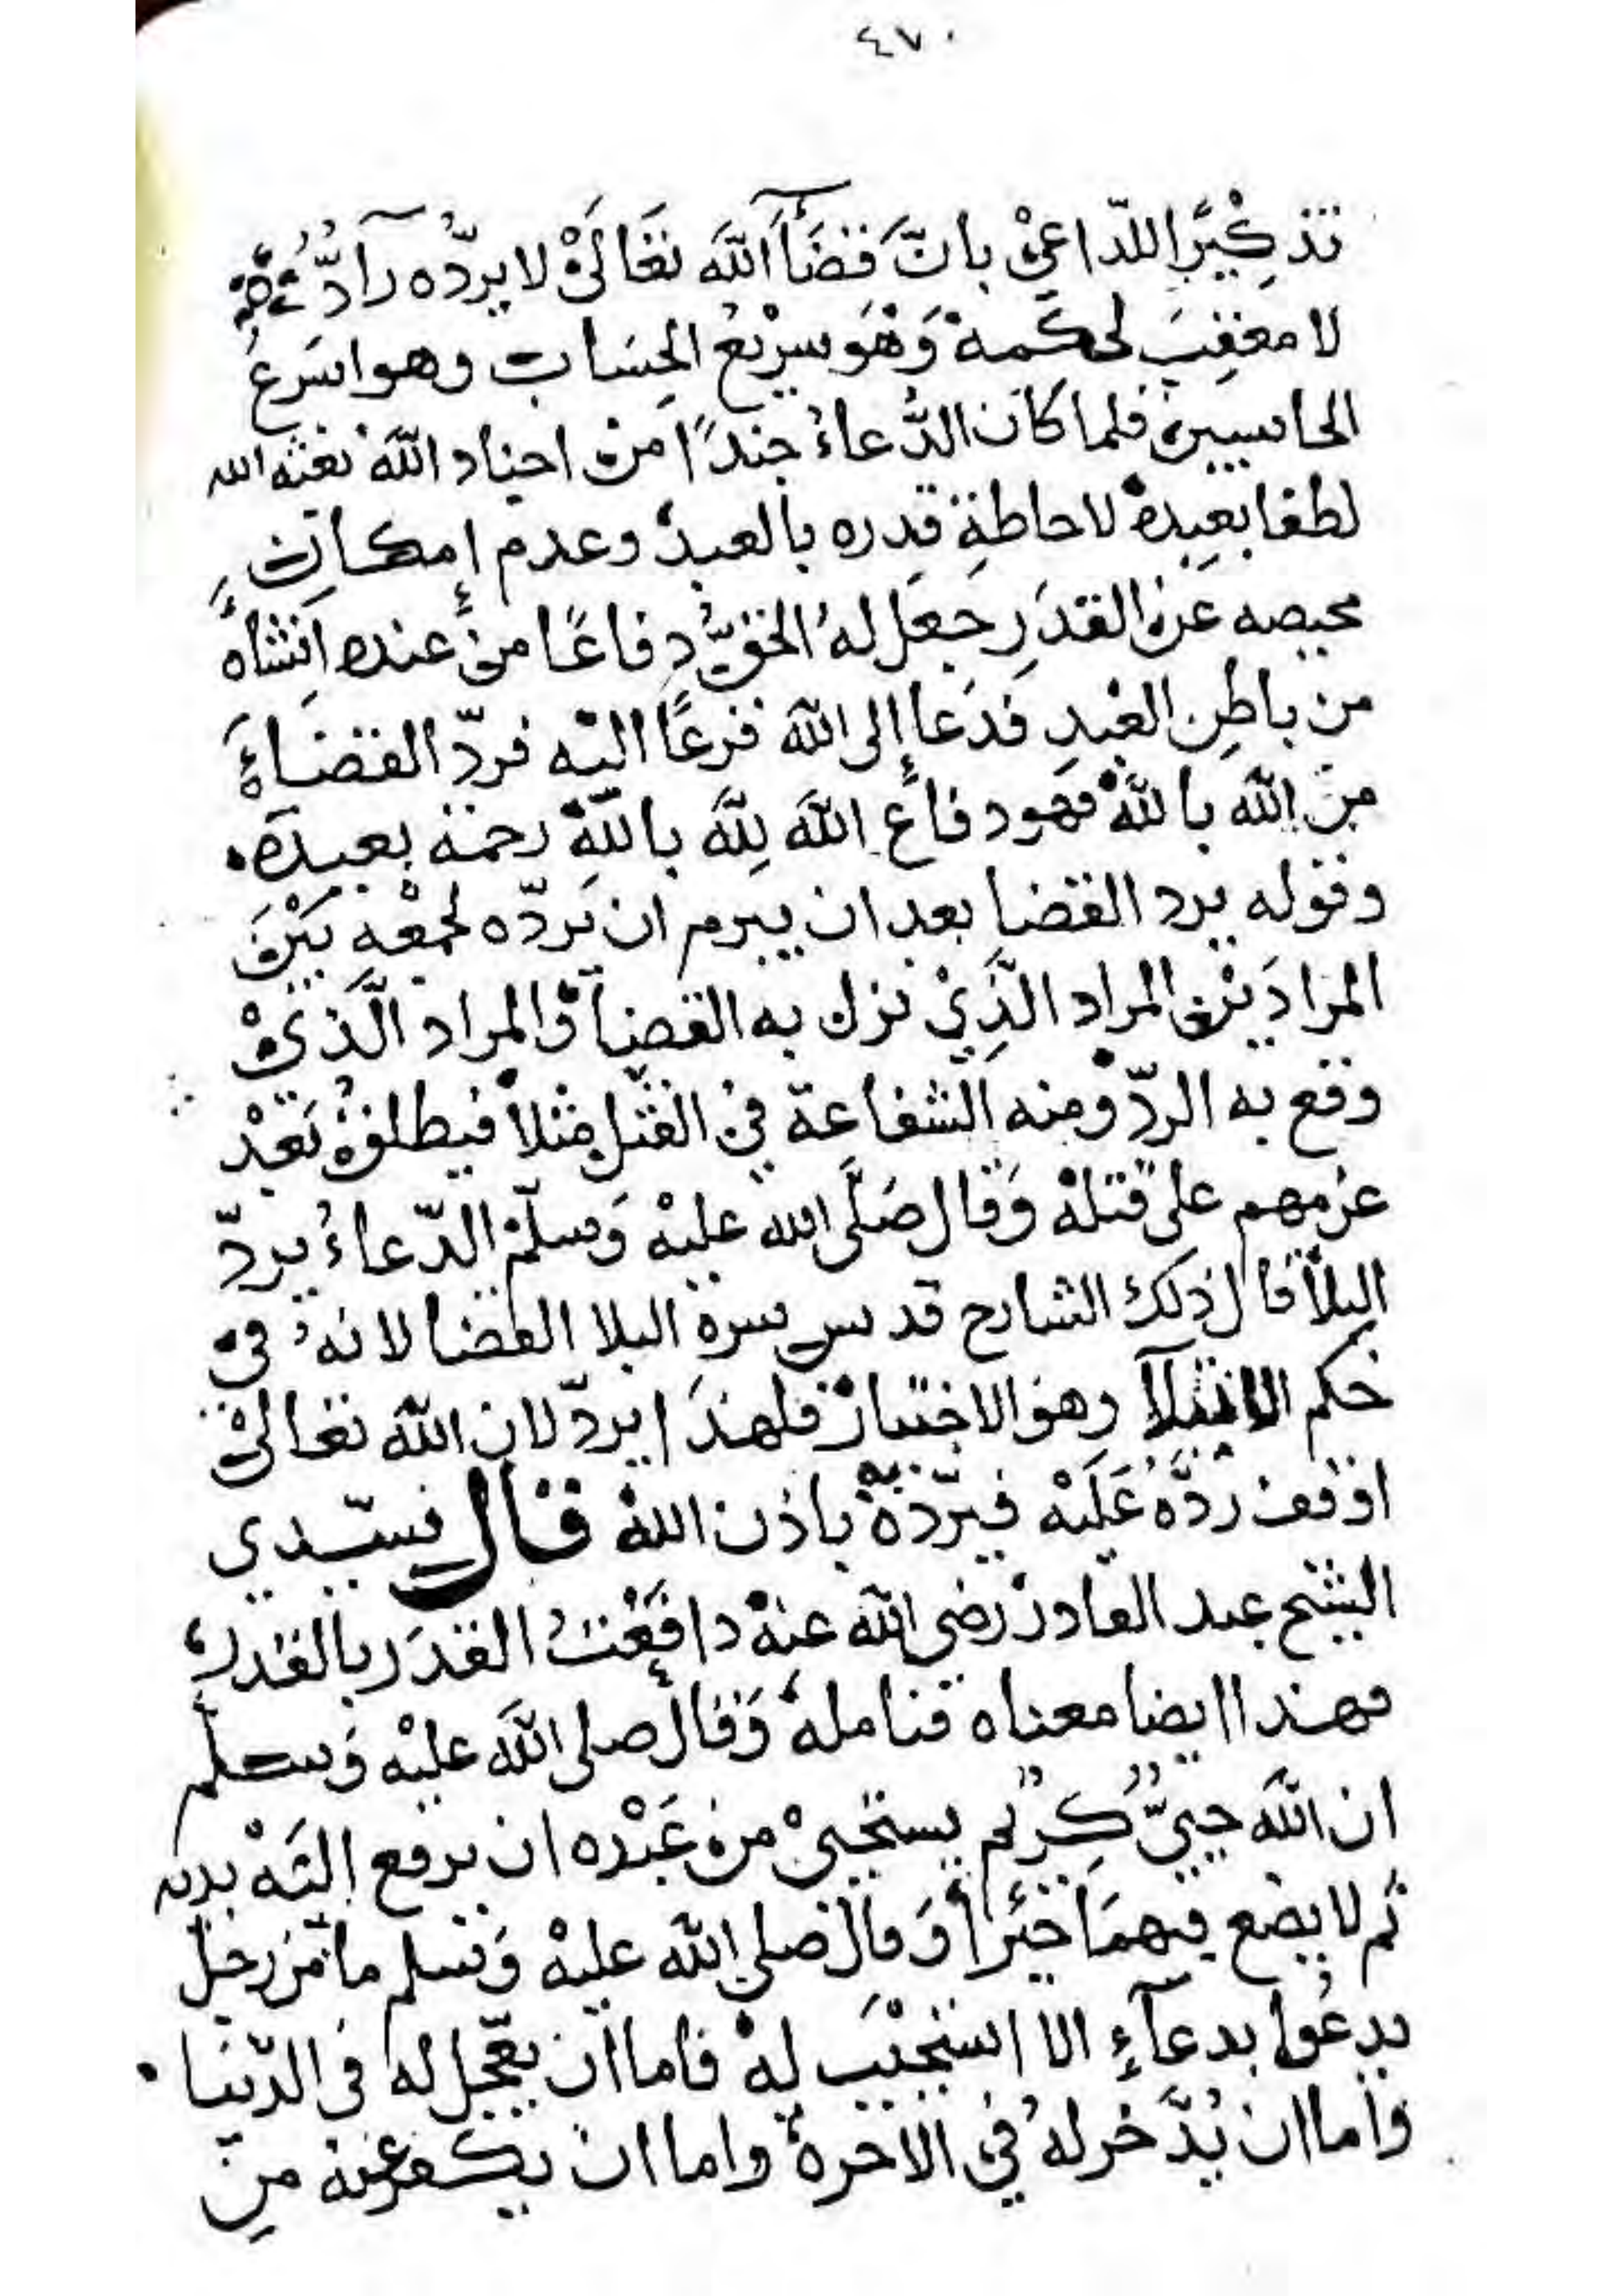 ٤٧٠
تذكيرًا للداعي بانّ قضآء اللّه تعالى لا يردّه رادّ
لا معقب لحكمه وهو سريع الحساب وهو اسرع
الحاسبين فلما كان الدّعاء جندًا من اجناد اللّه بعثه الله
لطفا بعبده لاحاطة قدره بالعبد وعدم إمكان
محيصه عن القدر جعل له الحقّ دفاعًا من عنده انشأه
من باطن العبد فدعا إلى اللّه فزعًا اليه فردّ القضاء
من اللّه باللّه فهو دفاع اللّه للّه باللّه رحمة بعبده
وقوله يرد القضا بعد ان يبرم ان يردّه لجمعه بين
المرادين المراد الّذي نزل به القضآ والمراد الّذي
وقع به الردّ ومنه الشفاعة في القتل مثلا فيطلقوه بعد
عزمهم على قتله وقال صلّى الله عليه وسلّم الدّعاء يردّ
البلا قال ذلك الشارح قدس سره البلا القضا لانه في
حكم الابتلآ وهو الاختبار فلهذا يردّ لان اللّه تعالى
اوقف ردّه عليه فيردّه به باذن اللّه قال سيّدي
الشيخ عبد القادر رضي اللّه عنه دافعت القدر بالقدر
فهذا ايضا معناه فتامله وقال صلى اللّه عليه وسلم
ان اللّه حييّ كريم يستحيي من عبده ان يرفع اليه يديه
ثم لا يضع فيهما خيرا وقال صلى اللّه عليه وسلم ما من رجل
يدعوا بدعآء الا استجيب له فاما ان يعجّل له في الدّنيا
واما ان يدّخر له في الاخرة واما ان يكفر عنه من